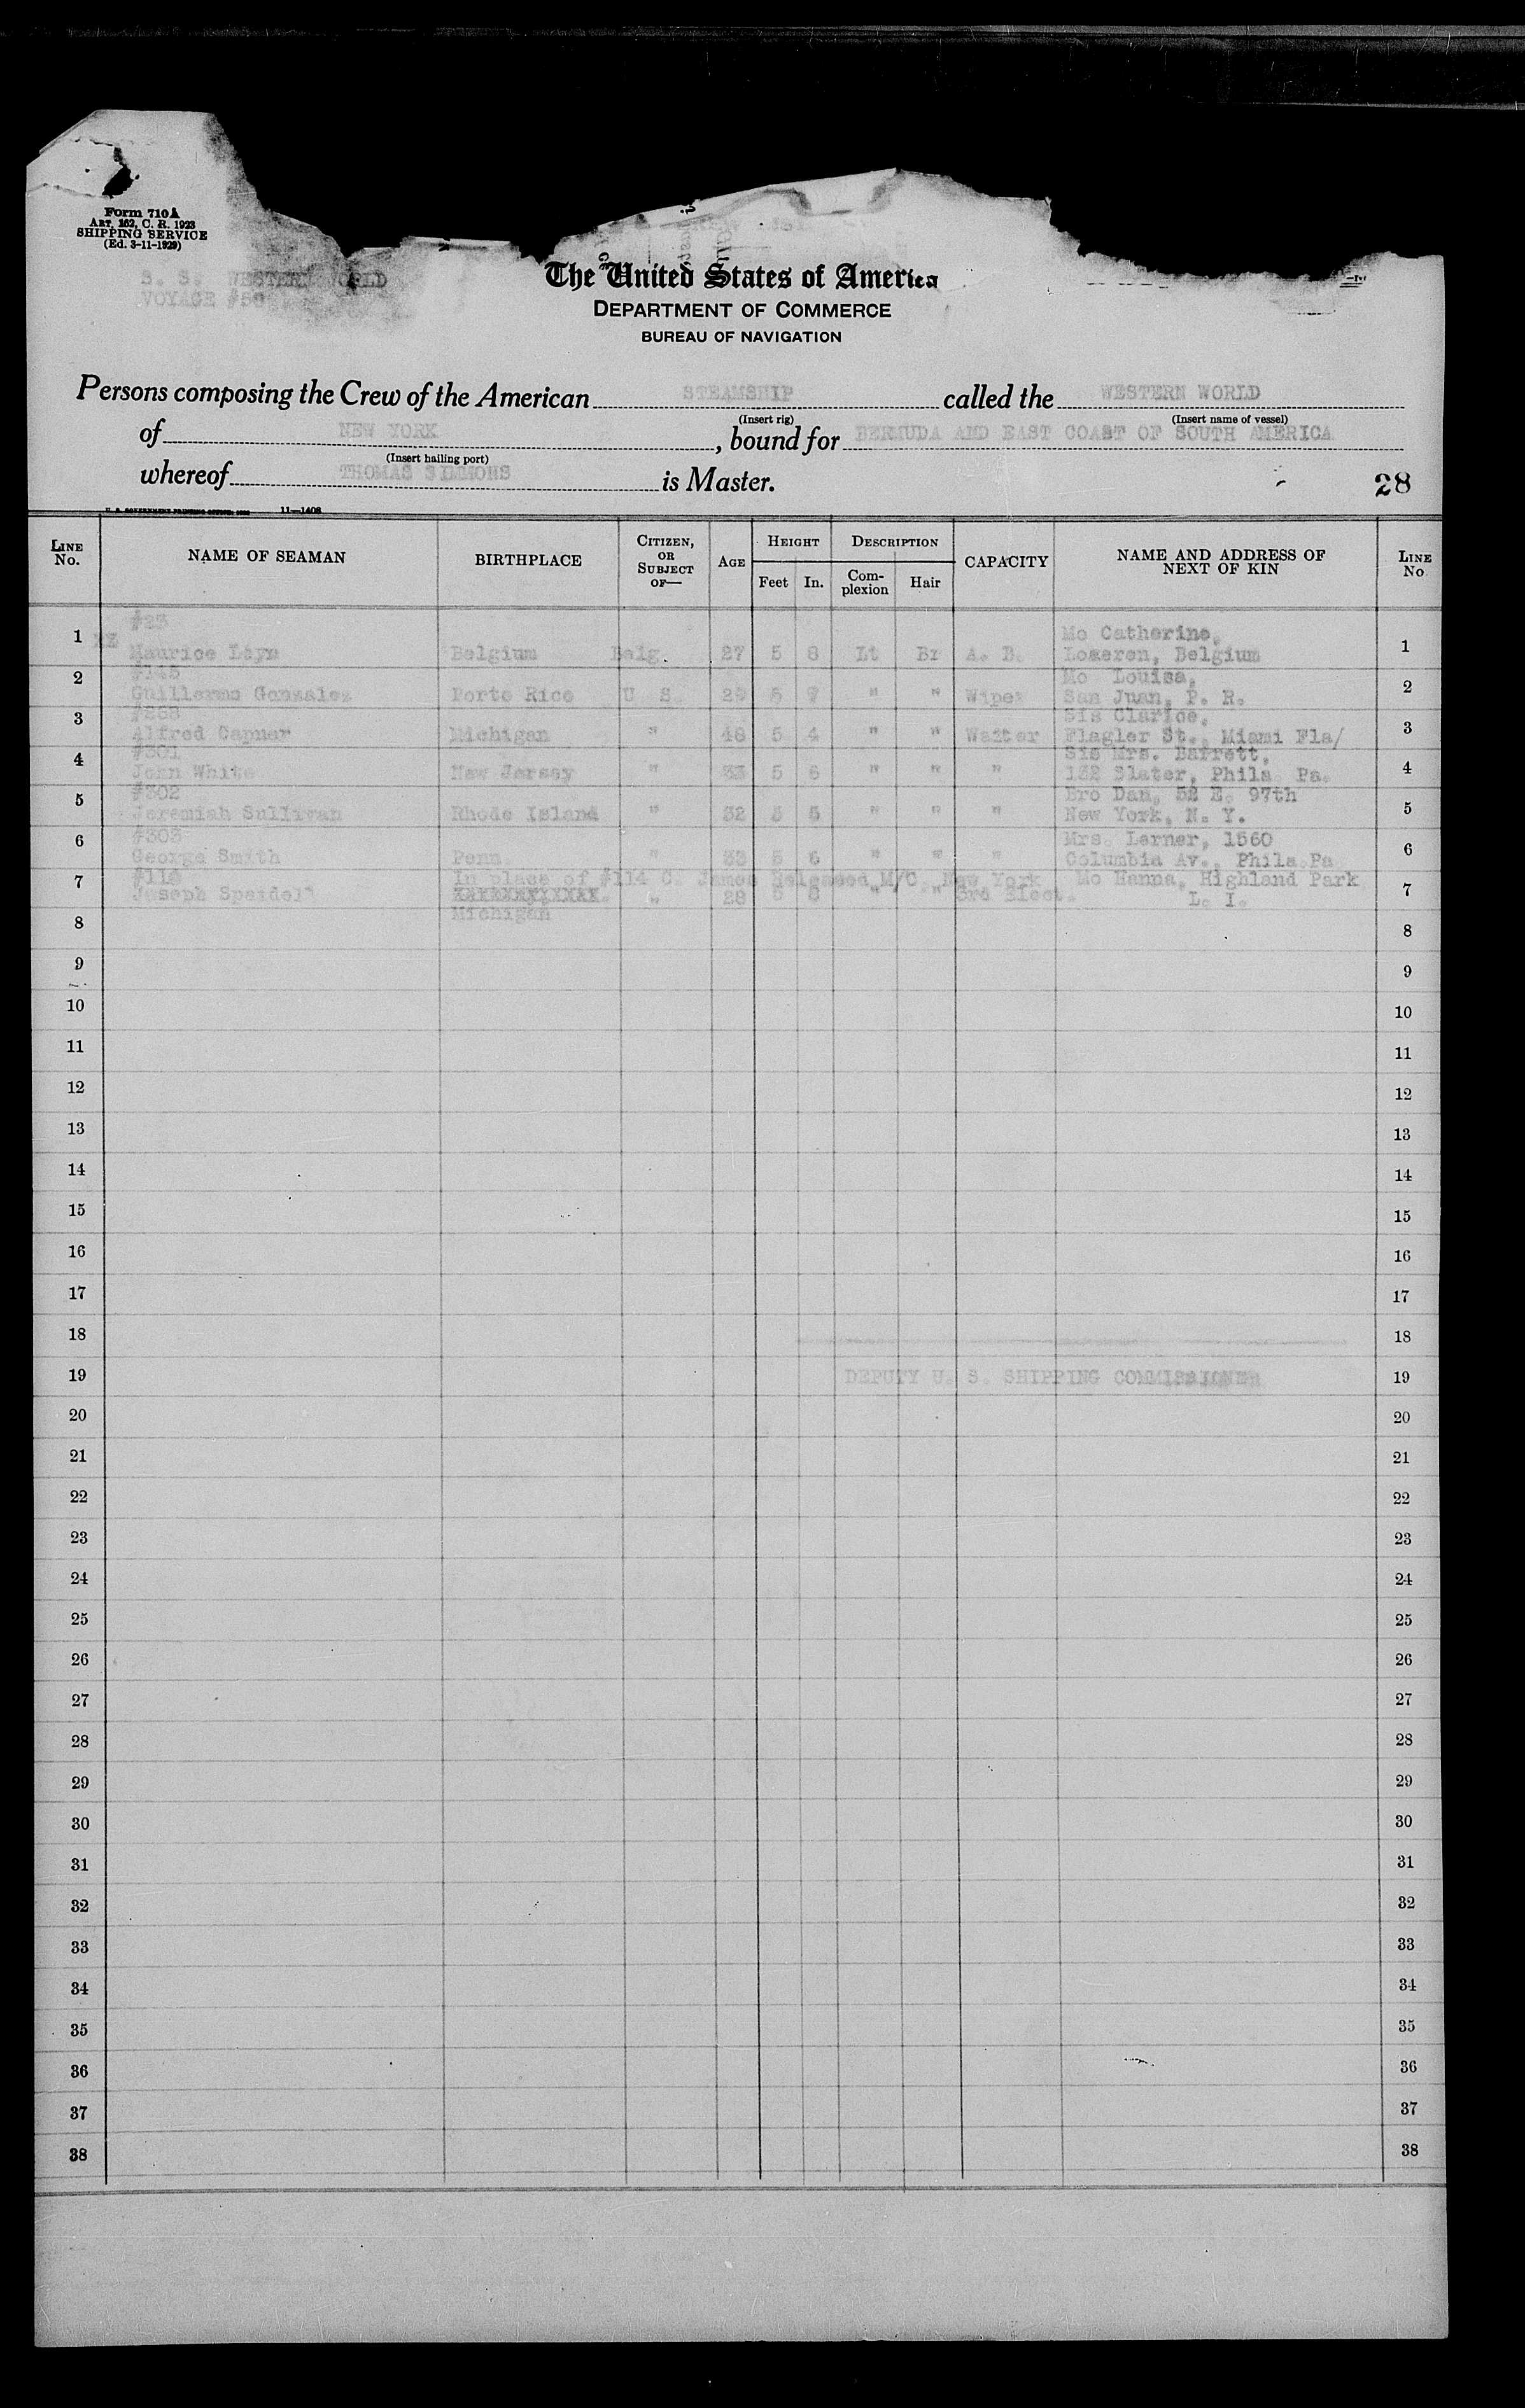 Form 710A
ART. 162, C. R. 1923
SHIPPING SERVICE
(Ed. 3-11-1929)
S. S. WESTERN WORLD
VOYAGE
The United States of America
DEPARTMENT OF COMMERCE
BUREAU OF NAVIGATION
Persons composing the Crew of the American STEAMSHIP called the WESTERN WORLD
(Insert rig) (Insert name of vessel)
of NEW YORK, bound for BERMUDA AND EAST COAST OF SOUTH AMERICA
(Insert hailing port)
whereof THOMAS SIMMONS is Master.
28
11—1408
LINE No. NAME OF SEAMAN BIRTHPLACE CITIZEN, OR SUBJECT OF— AGE HEIGHT Feet In. DESCRIPTION Com-plexion Hair CAPACITY NAME AND ADDRESS OF NEXT OF KIN LINE No
#23 Mo Catherine,
1 Maurice Belgium Belg. 27 5 8 Lt Br A. B. Lokeren, Belgium 1
#145 Mo Louisa,
2 Guillermo Gonzalez Porto Rico U S. 5 7 " " Wiper San Juan, P. R. 2
#268 Sis Clarice,
3 Alfred Capner Michigan " 48 5 4 " " Waiter Flagler St., Miami Fla/ 3
#301 Sis Mrs. Barrett,
4 John White New Jersey " 33 5 6 " " " 132 Slater, Phila Pa. 4
#302 Bro Dan, 52 E. 97th
5 Jeremiah Sullivan Rhode Island " 32 5 5 " " " New York, N. Y. 5
#303 Mrs. Lerner, 1560
6 George Smith Penn. " 33 5 6 " " " Columbia Av., Phila Pa 6
In place of #114 C. James Released M/C. New York Mo Hanna, Highland Park
7 Joseph Speidel " 28 5 8 " " 3rd Elect. L. I. 7
Michigan
8 8
9 9
10 10
11 11
12 12
13 13
14 14
15 15
16 16
17 17
18 18
19 DEPUTY U. S. SHIPPING COMMISSIONER 19
20 20
21 21
22 22
23 23
24 24
25 25
26 26
27 27
28 28
29 29
30 30
31 31
32 32
33 33
34 34
35 35
36 36
37 37
38 38